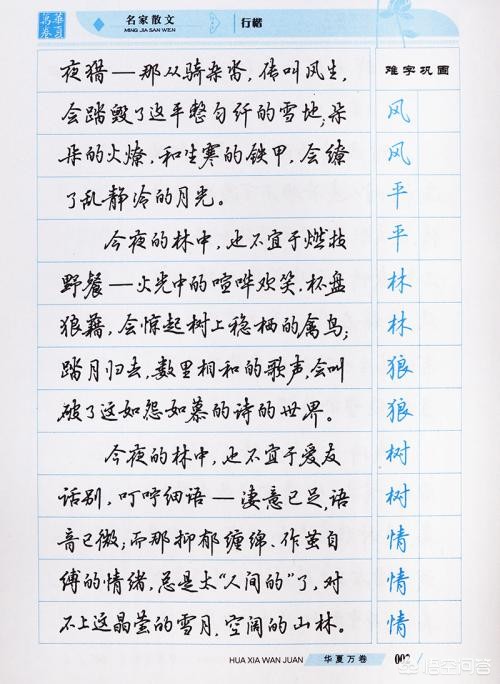 華夏萬卷
名家散文
MING JIA SAN WEN
行楷
夜猎——那从骑杂沓，传叫风生，
会踏毁了这平整匀纤的雪地；朵
朵的火燎，和生寒的铁甲，会缭
了乱静冷的月光。
今夜的林中，也不宜于燃枝
野餐——火光中的喧哗欢笑，杯盘
狼藉，会惊起树上稳栖的禽鸟；
踏月归去，数里相和的歌声，会叫
破了这如怨如慕的诗的世界。
今夜的林中，也不宜于爱友
话别，叮咛细语——凄意已足，语
音已微；而那抑郁缠绵、作茧自
缚的情绪，总是太“人间的”了，对
不上这晶莹的雪月，空阔的山林。
难字巩固
风
风
平
平
林
林
狼
狼
树
树
情
情
情
HUA XIA WAN JUAN
华夏万卷
悟空问答